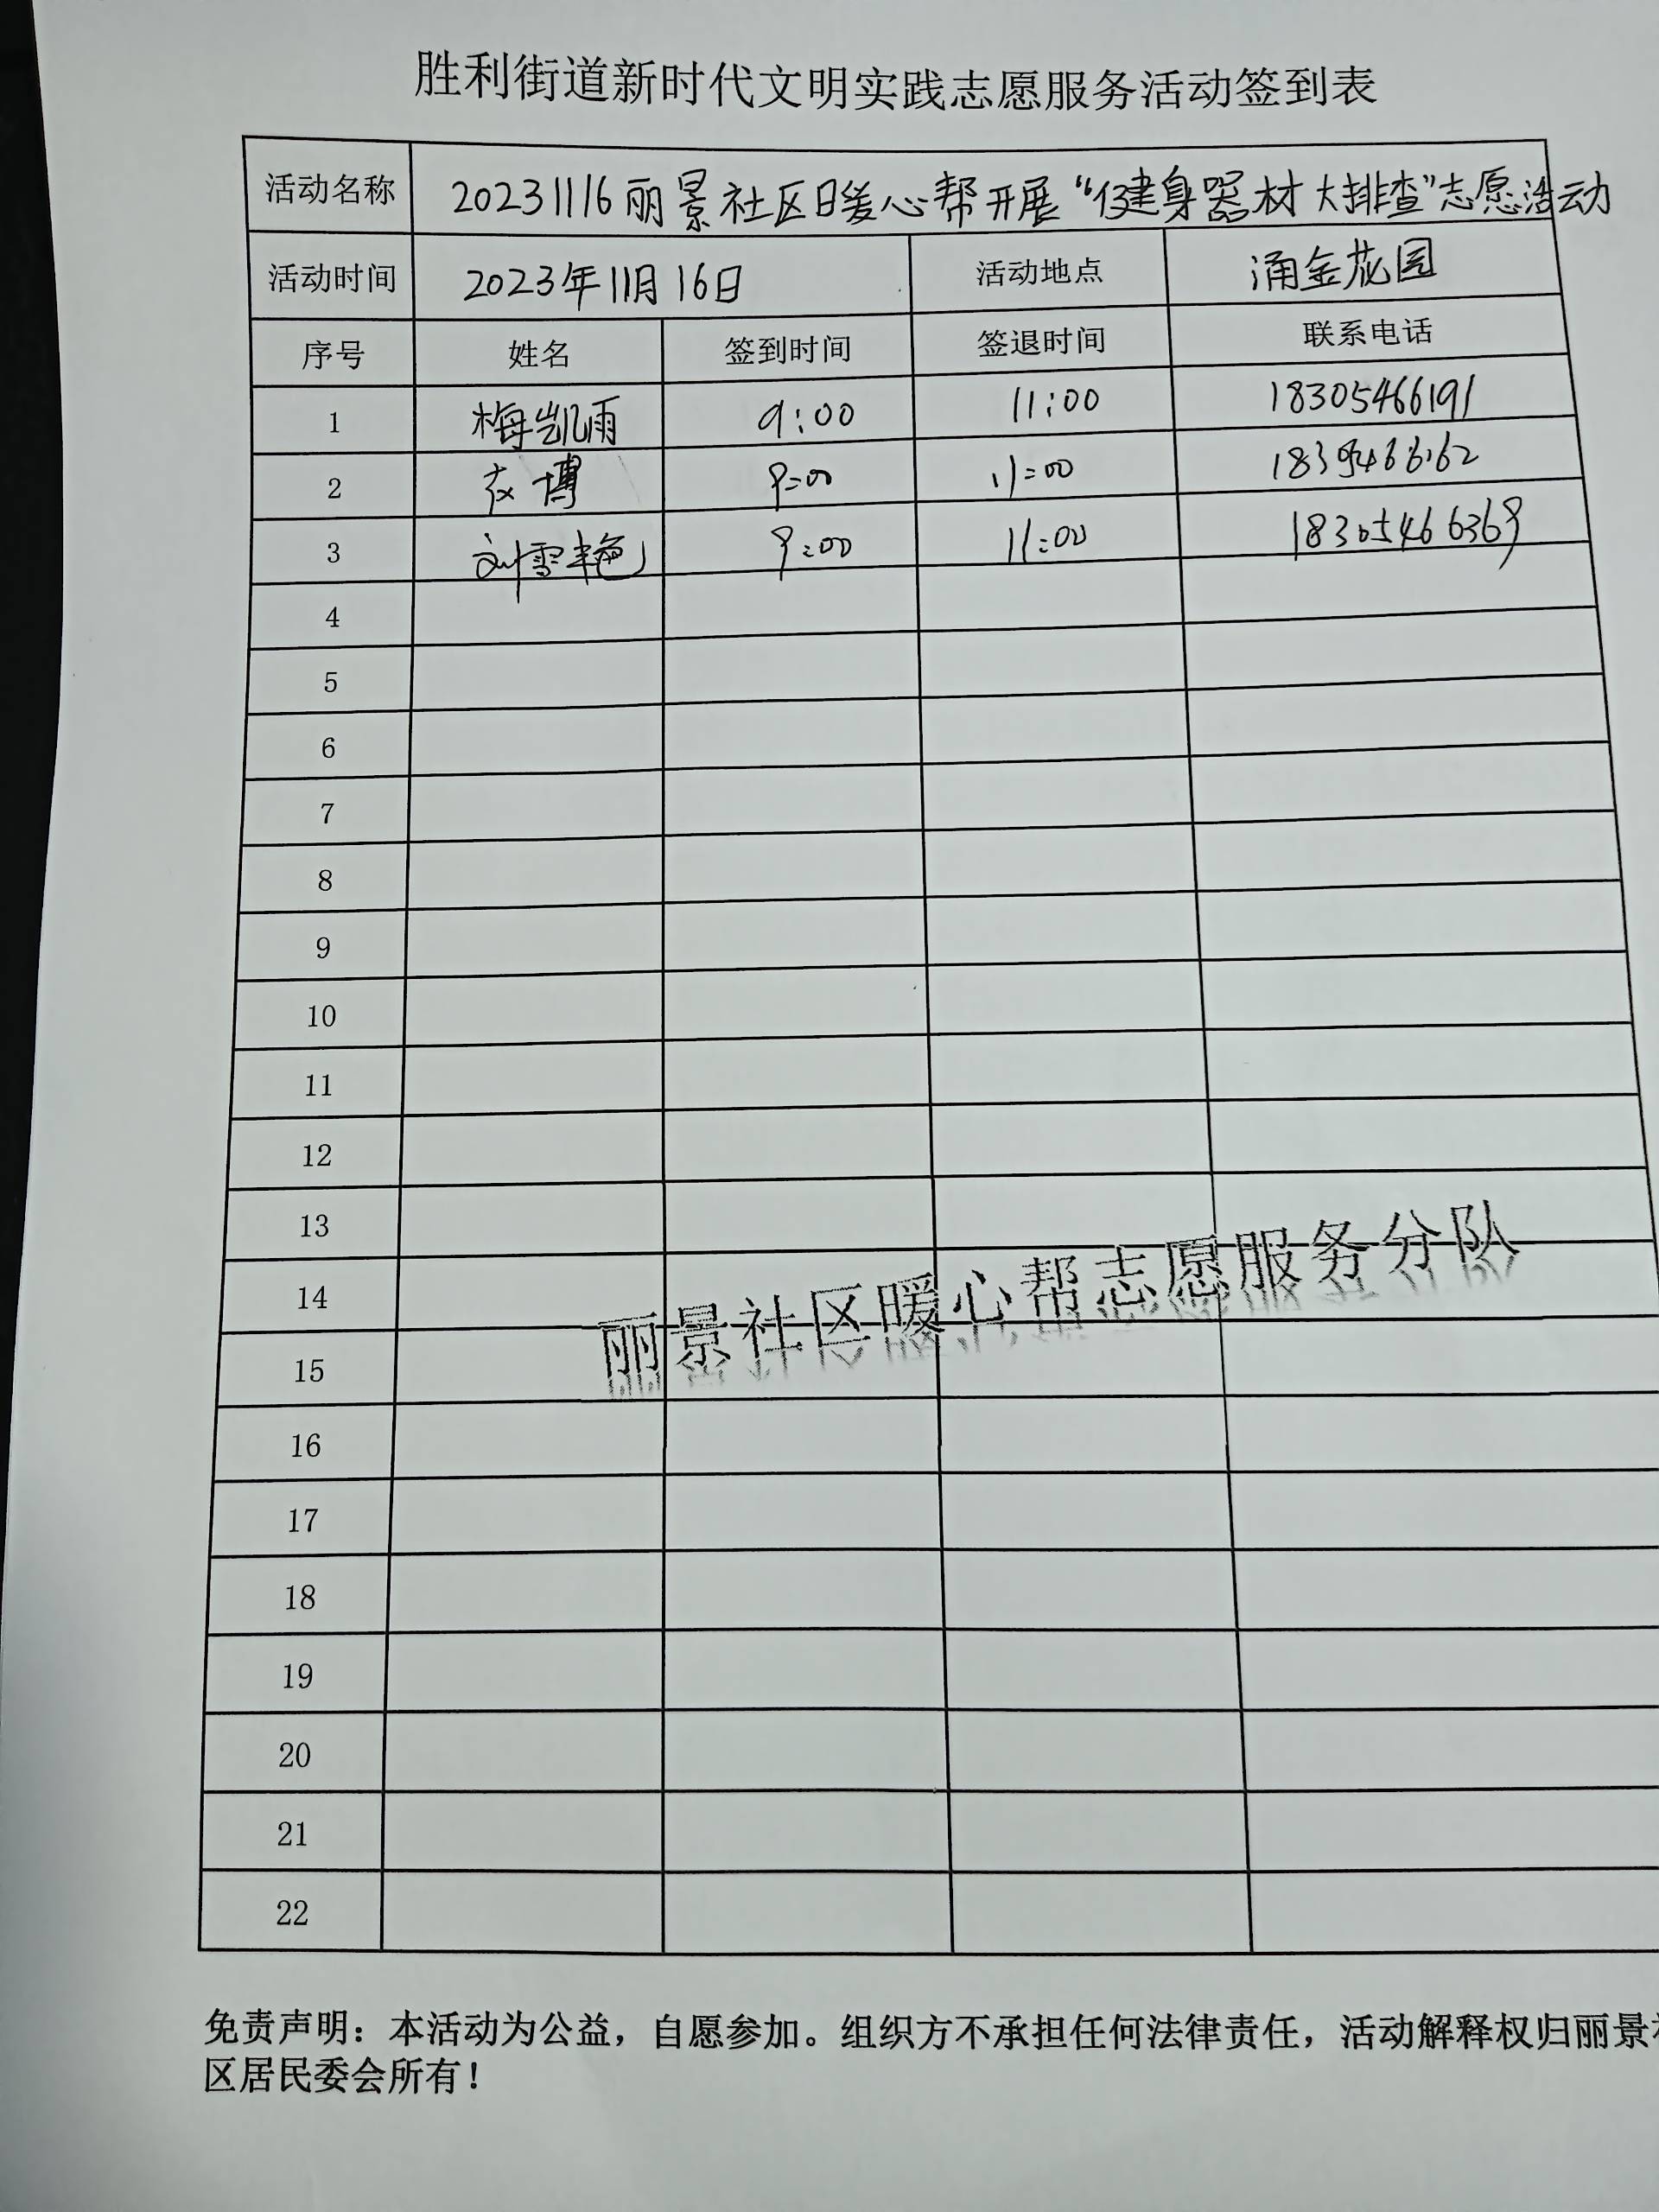 胜利街道新时代文明实践志愿服务活动签到表
活动名称 20231116丽景社区暖心帮开展“健身器材大排查”志愿活动
活动时间 2023年11月16日 活动地点 涌金花园
序号 姓名 签到时间 签退时间 联系电话
1 梅凯雨 9:00 11:00 18305466191
2 博 9:00 11:00
3 刘雪艳 9:00 11:00 18305466369
4
5
6
7
8
9
10
11
12
13
14
丽景社区暖心帮志愿服务分队
15
16
17
18
19
20
21
22
免责声明：本活动为公益，自愿参加。组织方不承担任何法律责任，活动解释权归丽景社
区居民委会所有！